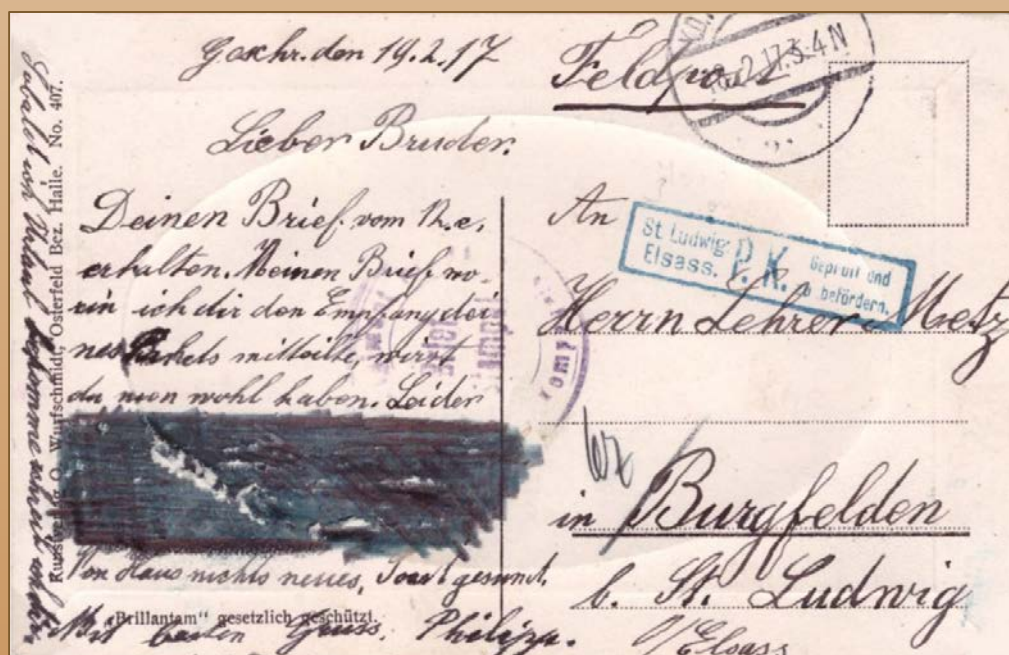 Geschr. den 19.2.17
Feldpost
Lieber Bruder.
Deinen Brief vom 12. e.
erhalten. Meinen Brief wo-
rin ich dir den Empfang dei-
nes Pakets mitteilte, wirst
du nun wohl haben. Leider
Von Haus nichts neues, gesund.
Mit besten Gruss, Philipp.
"Brillantam" gesetzlich geschützt.
Sobald ich Urlaub bekomme
O. Wurfschmidt, Osterfeld Bez. Halle. No. 407.
2.17.3-4N
An
St. Ludwig: P.K. Geprüft und
Elsass. zu befördern.
Herrn Lehrer Metz
in Burgfelden
b. St. Ludwig
i/Elsass